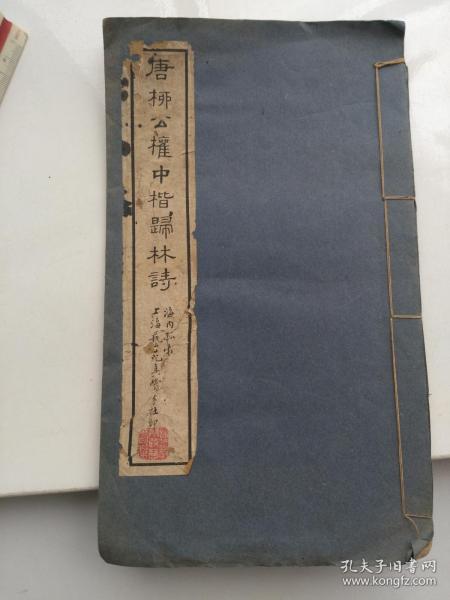 唐柳公權中楷歸林詩
海内孤本
上海藝苑真賞社印
孔夫子旧书网
www.kongfz.com